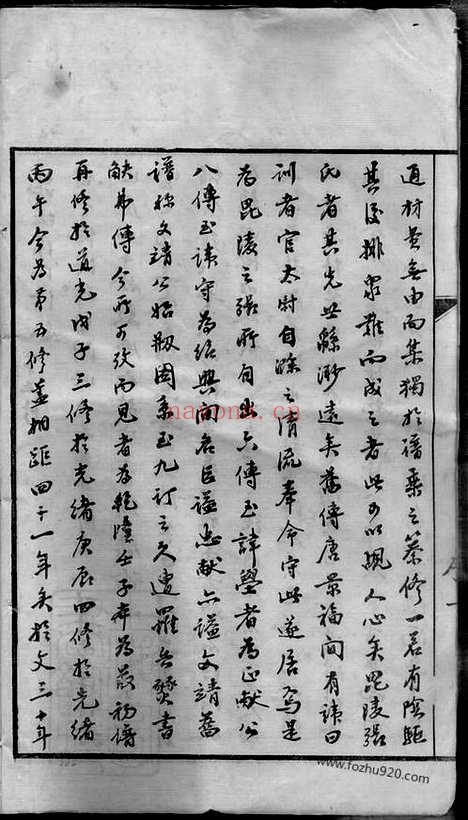 通材莫無由而集獨於譜乘之纂修一若有陰驅
其後排眾難而成之者此可以覘人心矣毘陵張
氏者其先世緜渺遠矣舊傳唐景福間有諱曰
訓者官太尉自滁之清流奉命守此遂居焉是
為毘陵之張所自出六傳至諱學者為正獻公
八傳至諱守為紹興間名臣謚忠獻亦謚文靖舊
譜稱文靖公始剏圖系至九訂之久遭羅兵燹書
缺弗傳今所可攷而見者為乾隆壬子本為最初譜
再修於道光戊子三修於光緒庚辰四修於光緒
丙午今為第五修並相距四十一年矣於文三十年
nayona.cn
www.fozhu920.com